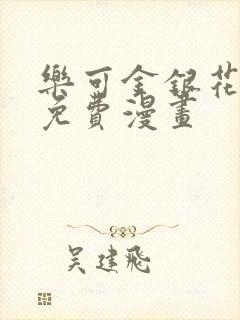 樂可金銀花
免費漫畫
吳建飛